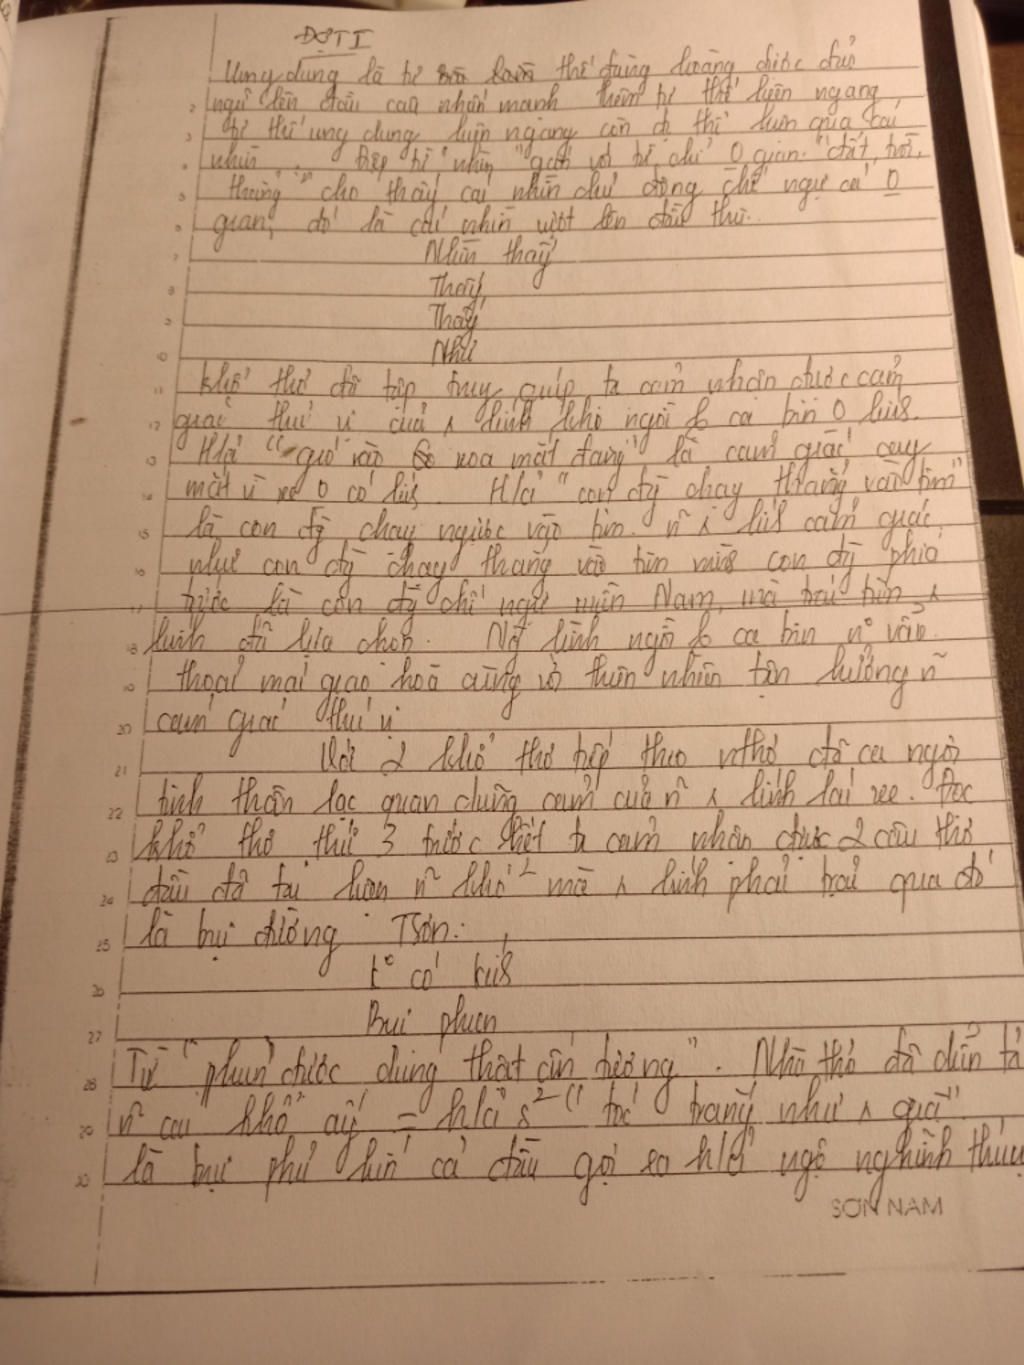 ĐỢT I
Ung dung là từ thế đàng hoàng được đưa
ngữ lên đầu câu nhấn mạnh thêm tư thế hiên ngang
tư thế ung dung hiên ngang còn đc thể hiện qua cái
nhìn. Điệp từ "nhìn" gắn với từ chỉ 0 gian "đất, trời,
thẳng" cho thấy cái nhìn chủ động chế ngự cả 0
gian, đó là cái nhìn vượt lên đầu thù.
Nhìn thấy
Thấy
Thấy
Như
khổ thơ đã tập trung giúp ta cảm nhận được cảm
giác thú vị của lính khi ngồi ca bin 0 kính.
H/ả "gió vào xoa mắt đắng" là cảm giác cay
mắt vì xe 0 có kính. H/ả "con đg chạy thẳng vào tim"
là con đg chạy ngược vào tim. lính cảm giác
như con đg chạy thẳng vào tim mình con đg phía
trước là con đg chế ngự miền Nam, mà trái tim
lính đã lựa chọn. lính ngồi ca bin vẫn
thoải mái giao hoà cùng với thiên nhiên tận hưởng
cảm giác thú vị
Với 2 khổ thơ tiếp theo nthơ đã ca ngợi
tinh thần lạc quan dũng cảm của lính lái xe. Đọc
khổ thơ thứ 3 trước hết ta cảm nhận được 2 câu thơ
đầu đã tái hiện khó mà lính phải trải qua đó
là bụi đường TSơn:
có kính
Bụi phun
Từ "phun" được dùng thật ấn tượng". Nhà thơ đã diễn tả
cái khổ ấy = h/ả s² "tóc trắng như già"
là bụi phủ kín cả đầu gợi ra h/ả ngộ nghĩnh
SƠN NAM